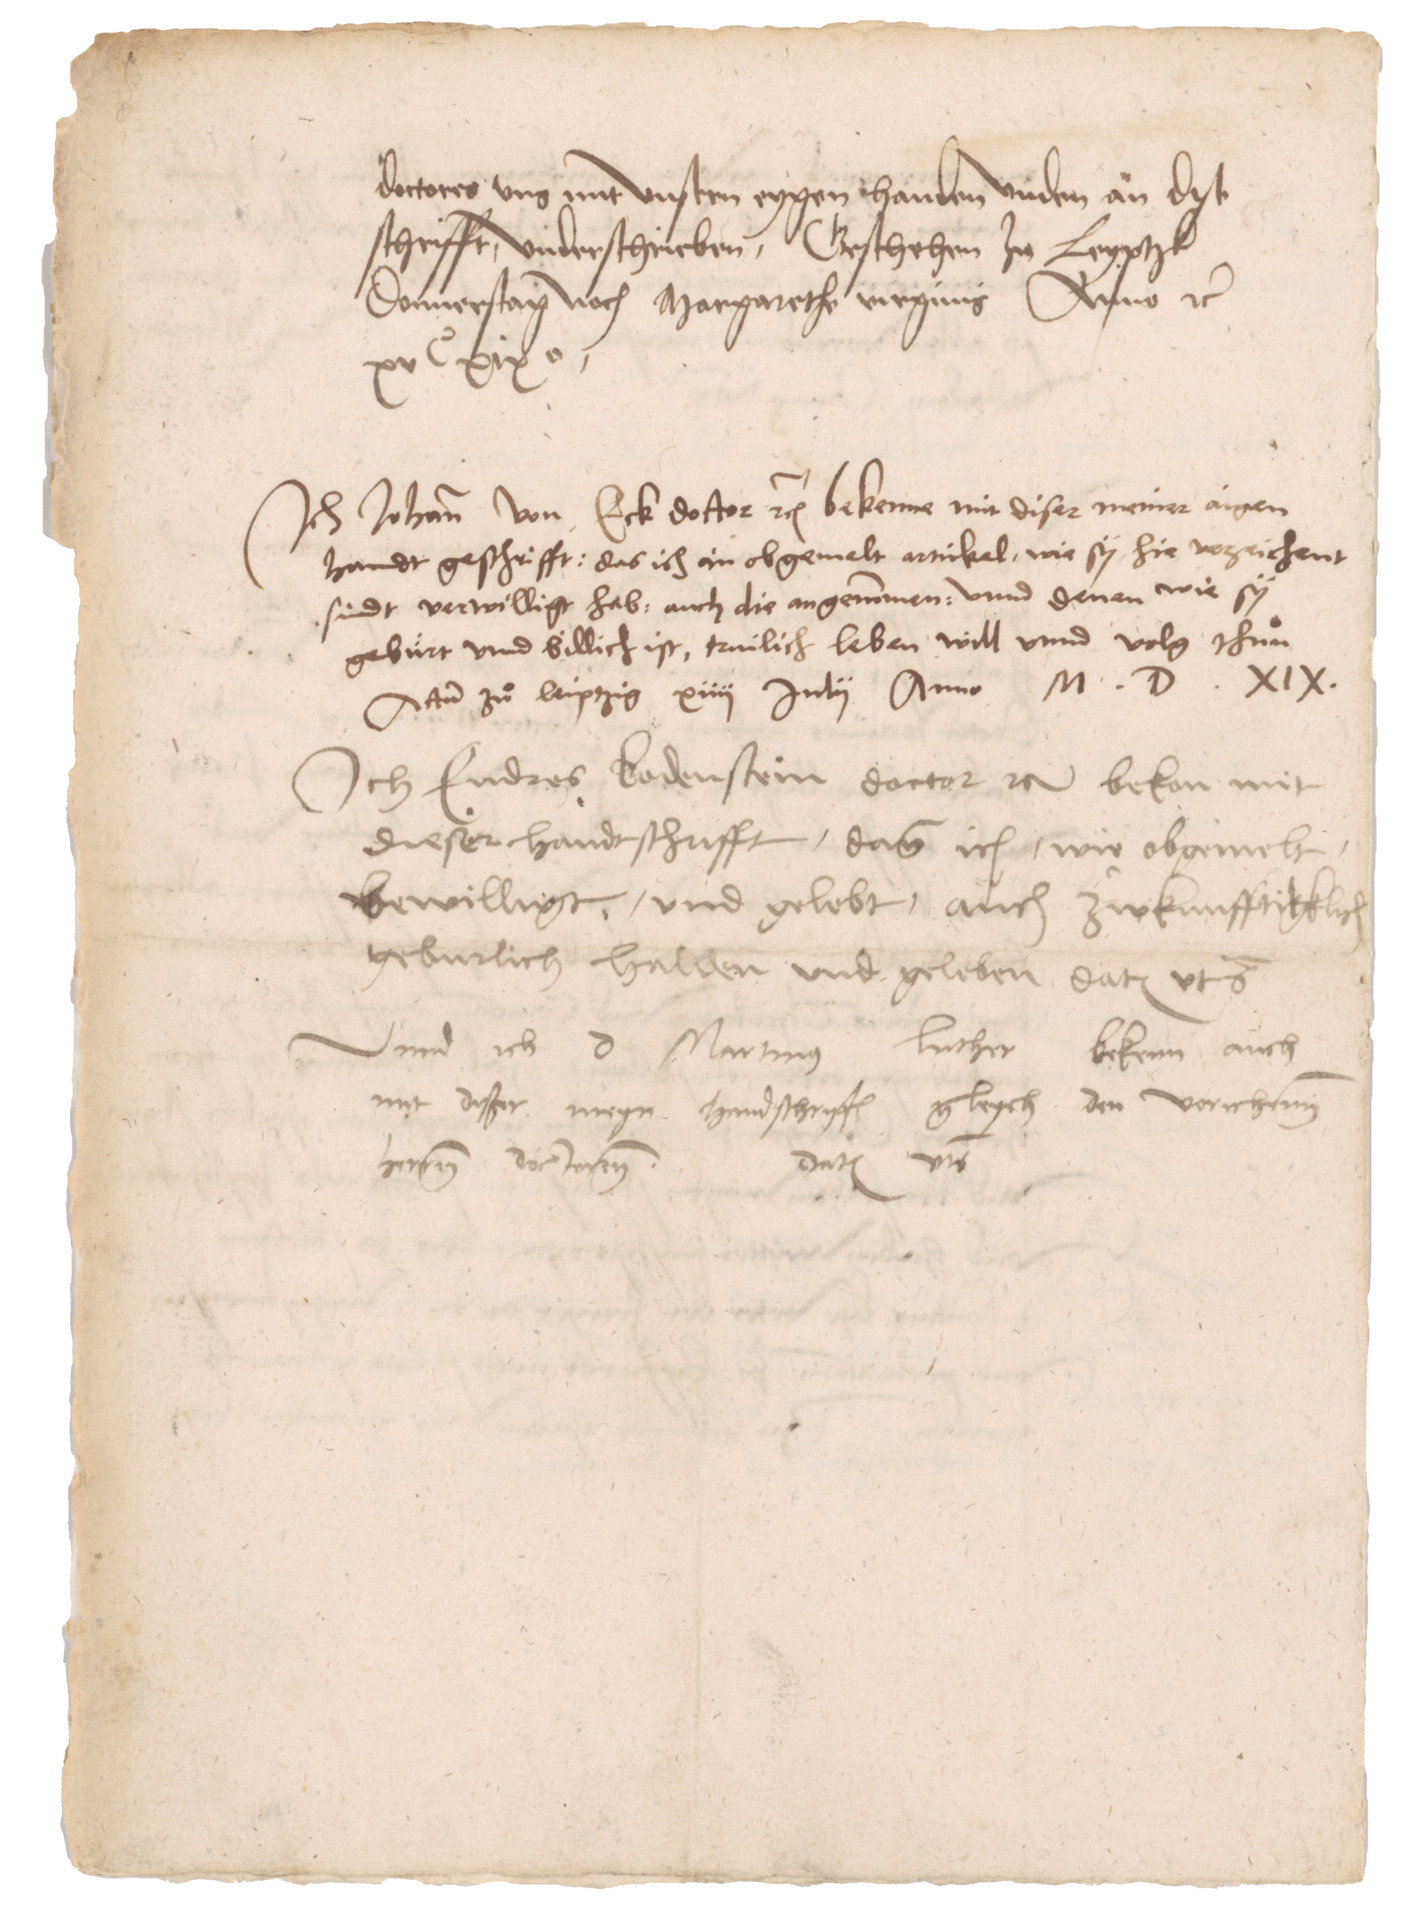 doctores vns mit vnsern eygen handen vnden an dise
schrifft, vnderschrieben, Geschehen zu Leyptzk
Donnerstag noch Margarethe virginis Anno ꝛc
xv C xix o,
Ich Johañ von Eck doctor ꝛc bekenne mit diser meiner aigen
handt geschrifft: das ich in obgemelt artickel, wie sÿ hie verzeichent
sindt verwilligt hab: auch die angenommen: vnnd denen wie sÿ
gebürt vnd billich ist, trulich leben will vnnd volg thůn
Actũ zů leiptzig xiiij Julij Anno M . D . XIX.
Ich Endres Bodenstein doctor ꝛc bekon mit
dieser handtschrifft, das ich, wie obgemelt,
bewilligt, vnd gelebt, auch zukunfftigklich
geburlich halden vnd geleben dat vts
Vnnd ich d Martinus luther bekenn auch
mit disser meyn handschrifft gleych den vorichenn
herrn doctorenn. dat vts